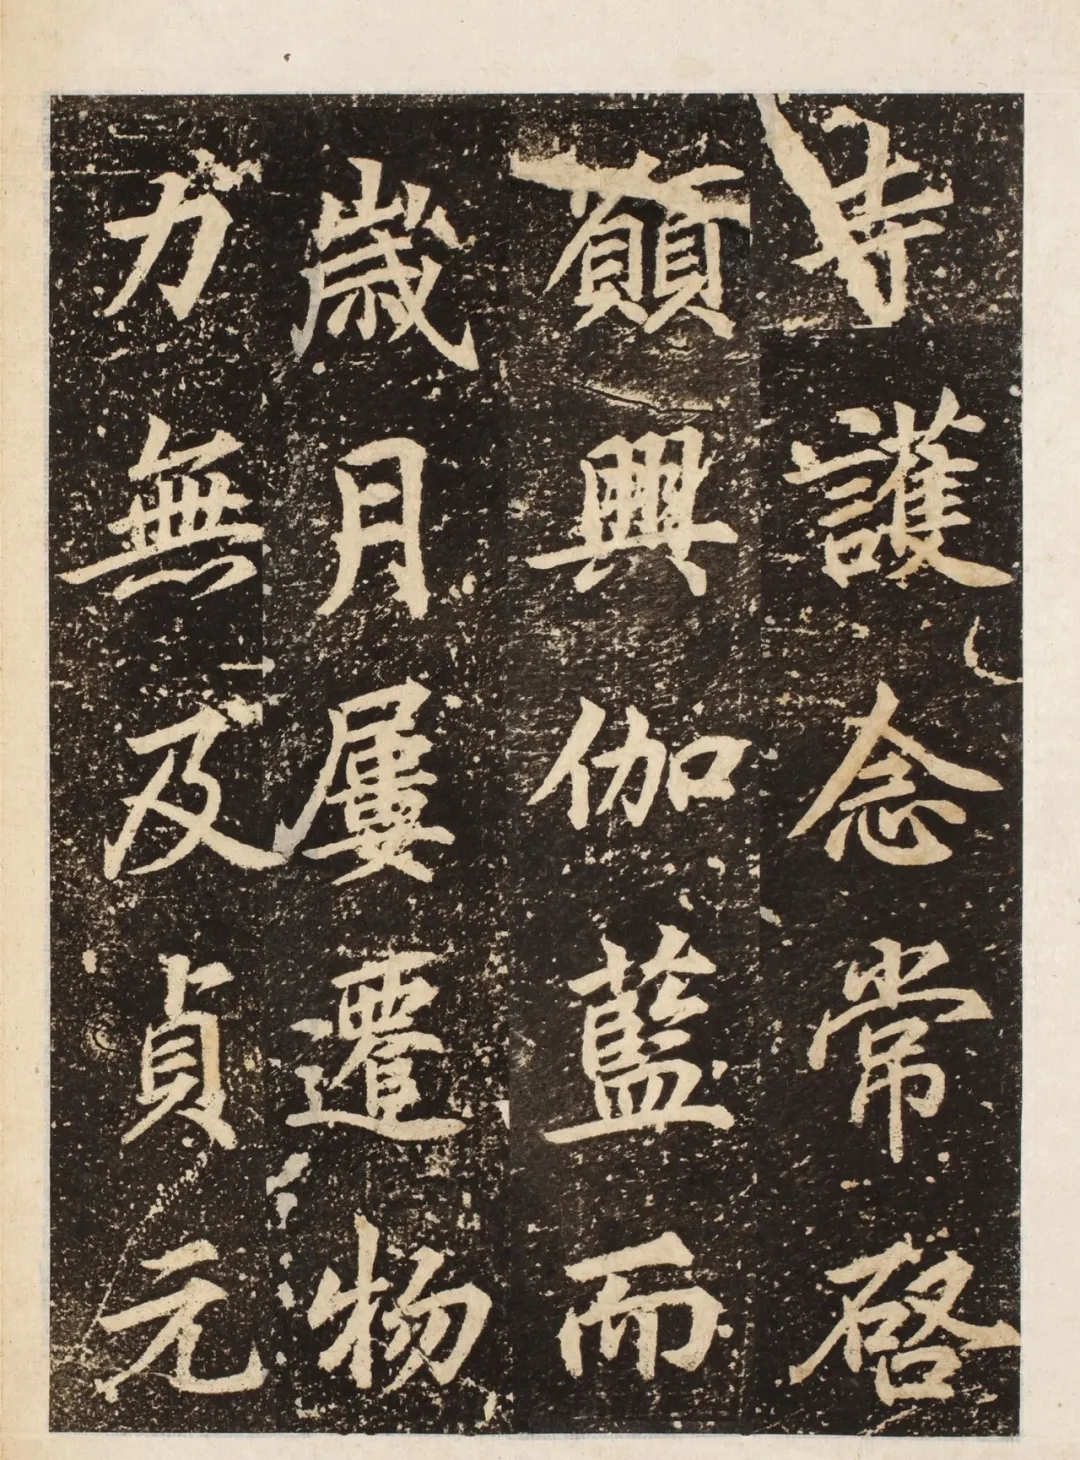 寺護念常啓
願興伽藍而
歲月屢遷物
力無及貞元